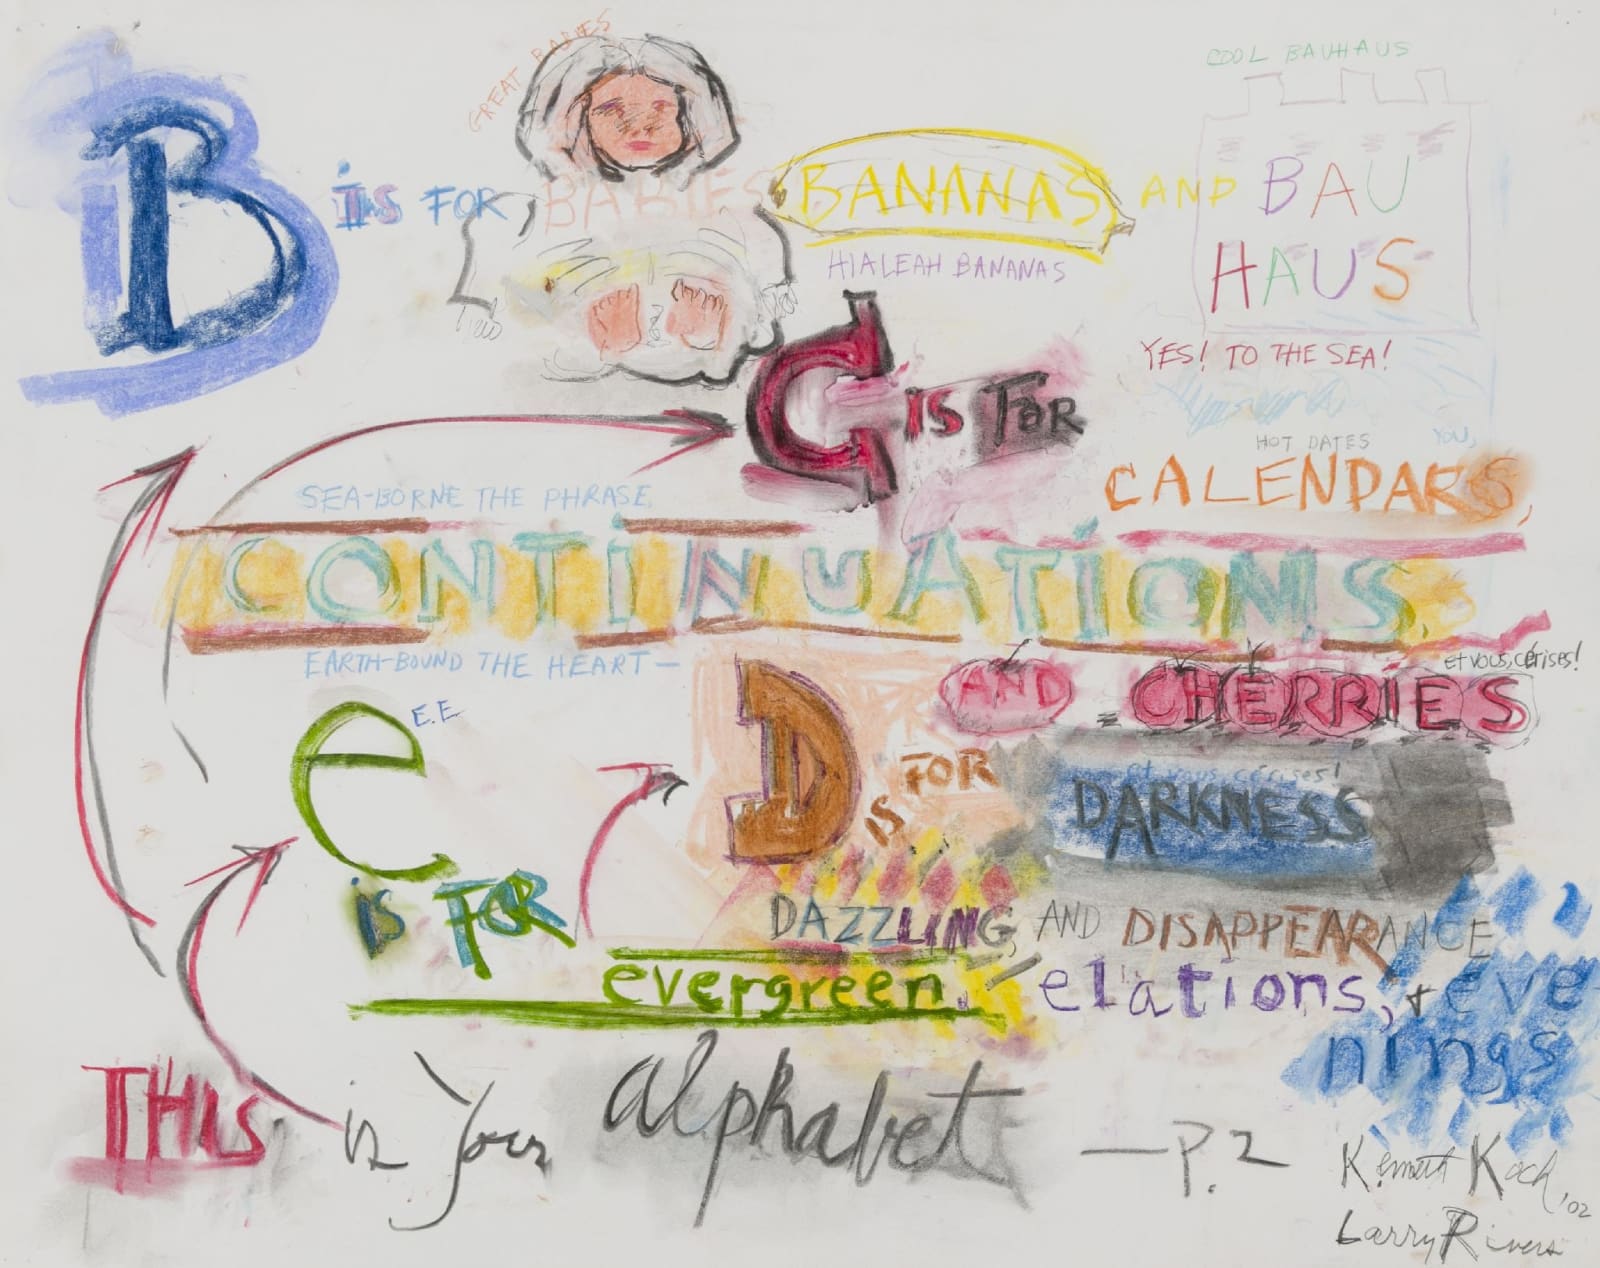 GREAT BABIES
COOL BAUHAUS
B is FOR BABIES BANANAS AND BAU
HAUS
HIALEAH BANANAS
YES! TO THE SEA!
C IS FOR
HOT DATES YOU,
CALENDARS,
SEA-BORNE THE PHRASE,
CONTINUATIONS
EARTH-BOUND THE HEART—
et vous, cérises!
AND CHERRIES
et vous, cérises!
D IS FOR DARKNESS
DAZZLING, AND DISAPPEARANCE
e E.E
is FOR
evergreen, elations, + eve
nings
THIS is your alphabet — P. 2
Kenneth Koch, '02
Larry Rivers